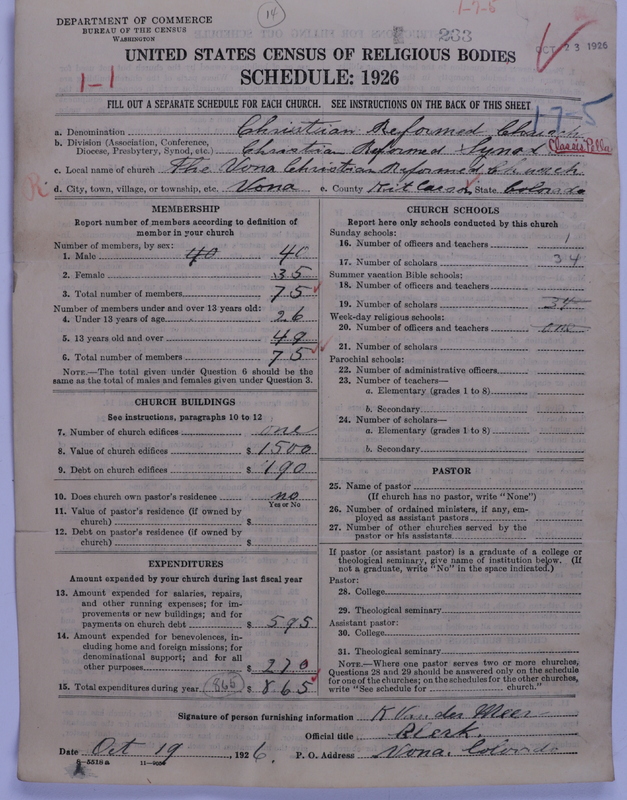 DEPARTMENT OF COMMERCE
BUREAU OF THE CENSUS
WASHINGTON
14
1-7-5
233
OCT 23 1926
UNITED STATES CENSUS OF RELIGIOUS BODIES
SCHEDULE: 1926
1-1
FILL OUT A SEPARATE SCHEDULE FOR EACH CHURCH. SEE INSTRUCTIONS ON THE BACK OF THIS SHEET
17-5
a. Denomination Christian Reformed Church
b. Division (Association, Conference, Diocese, Presbytery, Synod, etc.) Christian Reformed Synod Classis Pella
c. Local name of church The Vona Christian Reformed Church
d. City, town, village, or township, etc. Vona e. County Kit Carson State Colorado
MEMBERSHIP
Report number of members according to definition of
member in your church
Number of members, by sex:
1. Male 40 40
2. Female 35
3. Total number of members 75
Number of members under and over 13 years old:
4. Under 13 years of age 26
5. 13 years old and over 49
6. Total number of members 75
NOTE.—The total given under Question 6 should be the
same as the total of males and females given under Question 3.
CHURCH BUILDINGS
See instructions, paragraphs 10 to 12
7. Number of church edifices one
8. Value of church edifices $ 1500
9. Debt on church edifices $ 190
10. Does church own pastor's residence no
Yes or No
11. Value of pastor's residence (if owned by
church) $
12. Debt on pastor's residence (if owned by
church) $
EXPENDITURES
Amount expended by your church during last fiscal year
13. Amount expended for salaries, repairs,
and other running expenses; for im-
provements or new buildings; and for
payments on church debt $ 595
14. Amount expended for benevolences, in-
cluding home and foreign missions; for
denominational support; and for all
other purposes $ 270
15. Total expenditures during year 865 $ 865
CHURCH SCHOOLS
Report here only schools conducted by this church
Sunday schools:
16. Number of officers and teachers 1
17. Number of scholars 34
Summer vacation Bible schools:
18. Number of officers and teachers
19. Number of scholars 34
Week-day religious schools:
20. Number of officers and teachers one
21. Number of scholars
Parochial schools:
22. Number of administrative officers
23. Number of teachers—
a. Elementary (grades 1 to 8)
b. Secondary
24. Number of scholars—
a. Elementary (grades 1 to 8)
b. Secondary
PASTOR
25. Name of pastor
(If church has no pastor, write "None")
26. Number of ordained ministers, if any, em-
ployed as assistant pastors
27. Number of other churches served by the
pastor or his assistants
If pastor (or assistant pastor) is a graduate of a college or
theological seminary, give name of institution below. (If
not a graduate, write "No" in the space indicated.)
Pastor:
28. College
29. Theological seminary
Assistant pastor:
30. College
31. Theological seminary
NOTE.—Where one pastor serves two or more churches,
Questions 28 and 29 should be answered only on the schedule
for one of the churches; on the schedules for the other churches,
write "See schedule for church."
Signature of person furnishing information K Van der Meer
Official title Clerk.
Date Oct 19, 1926. P. O. Address Vona. Colorado
8—5518a 11—9036